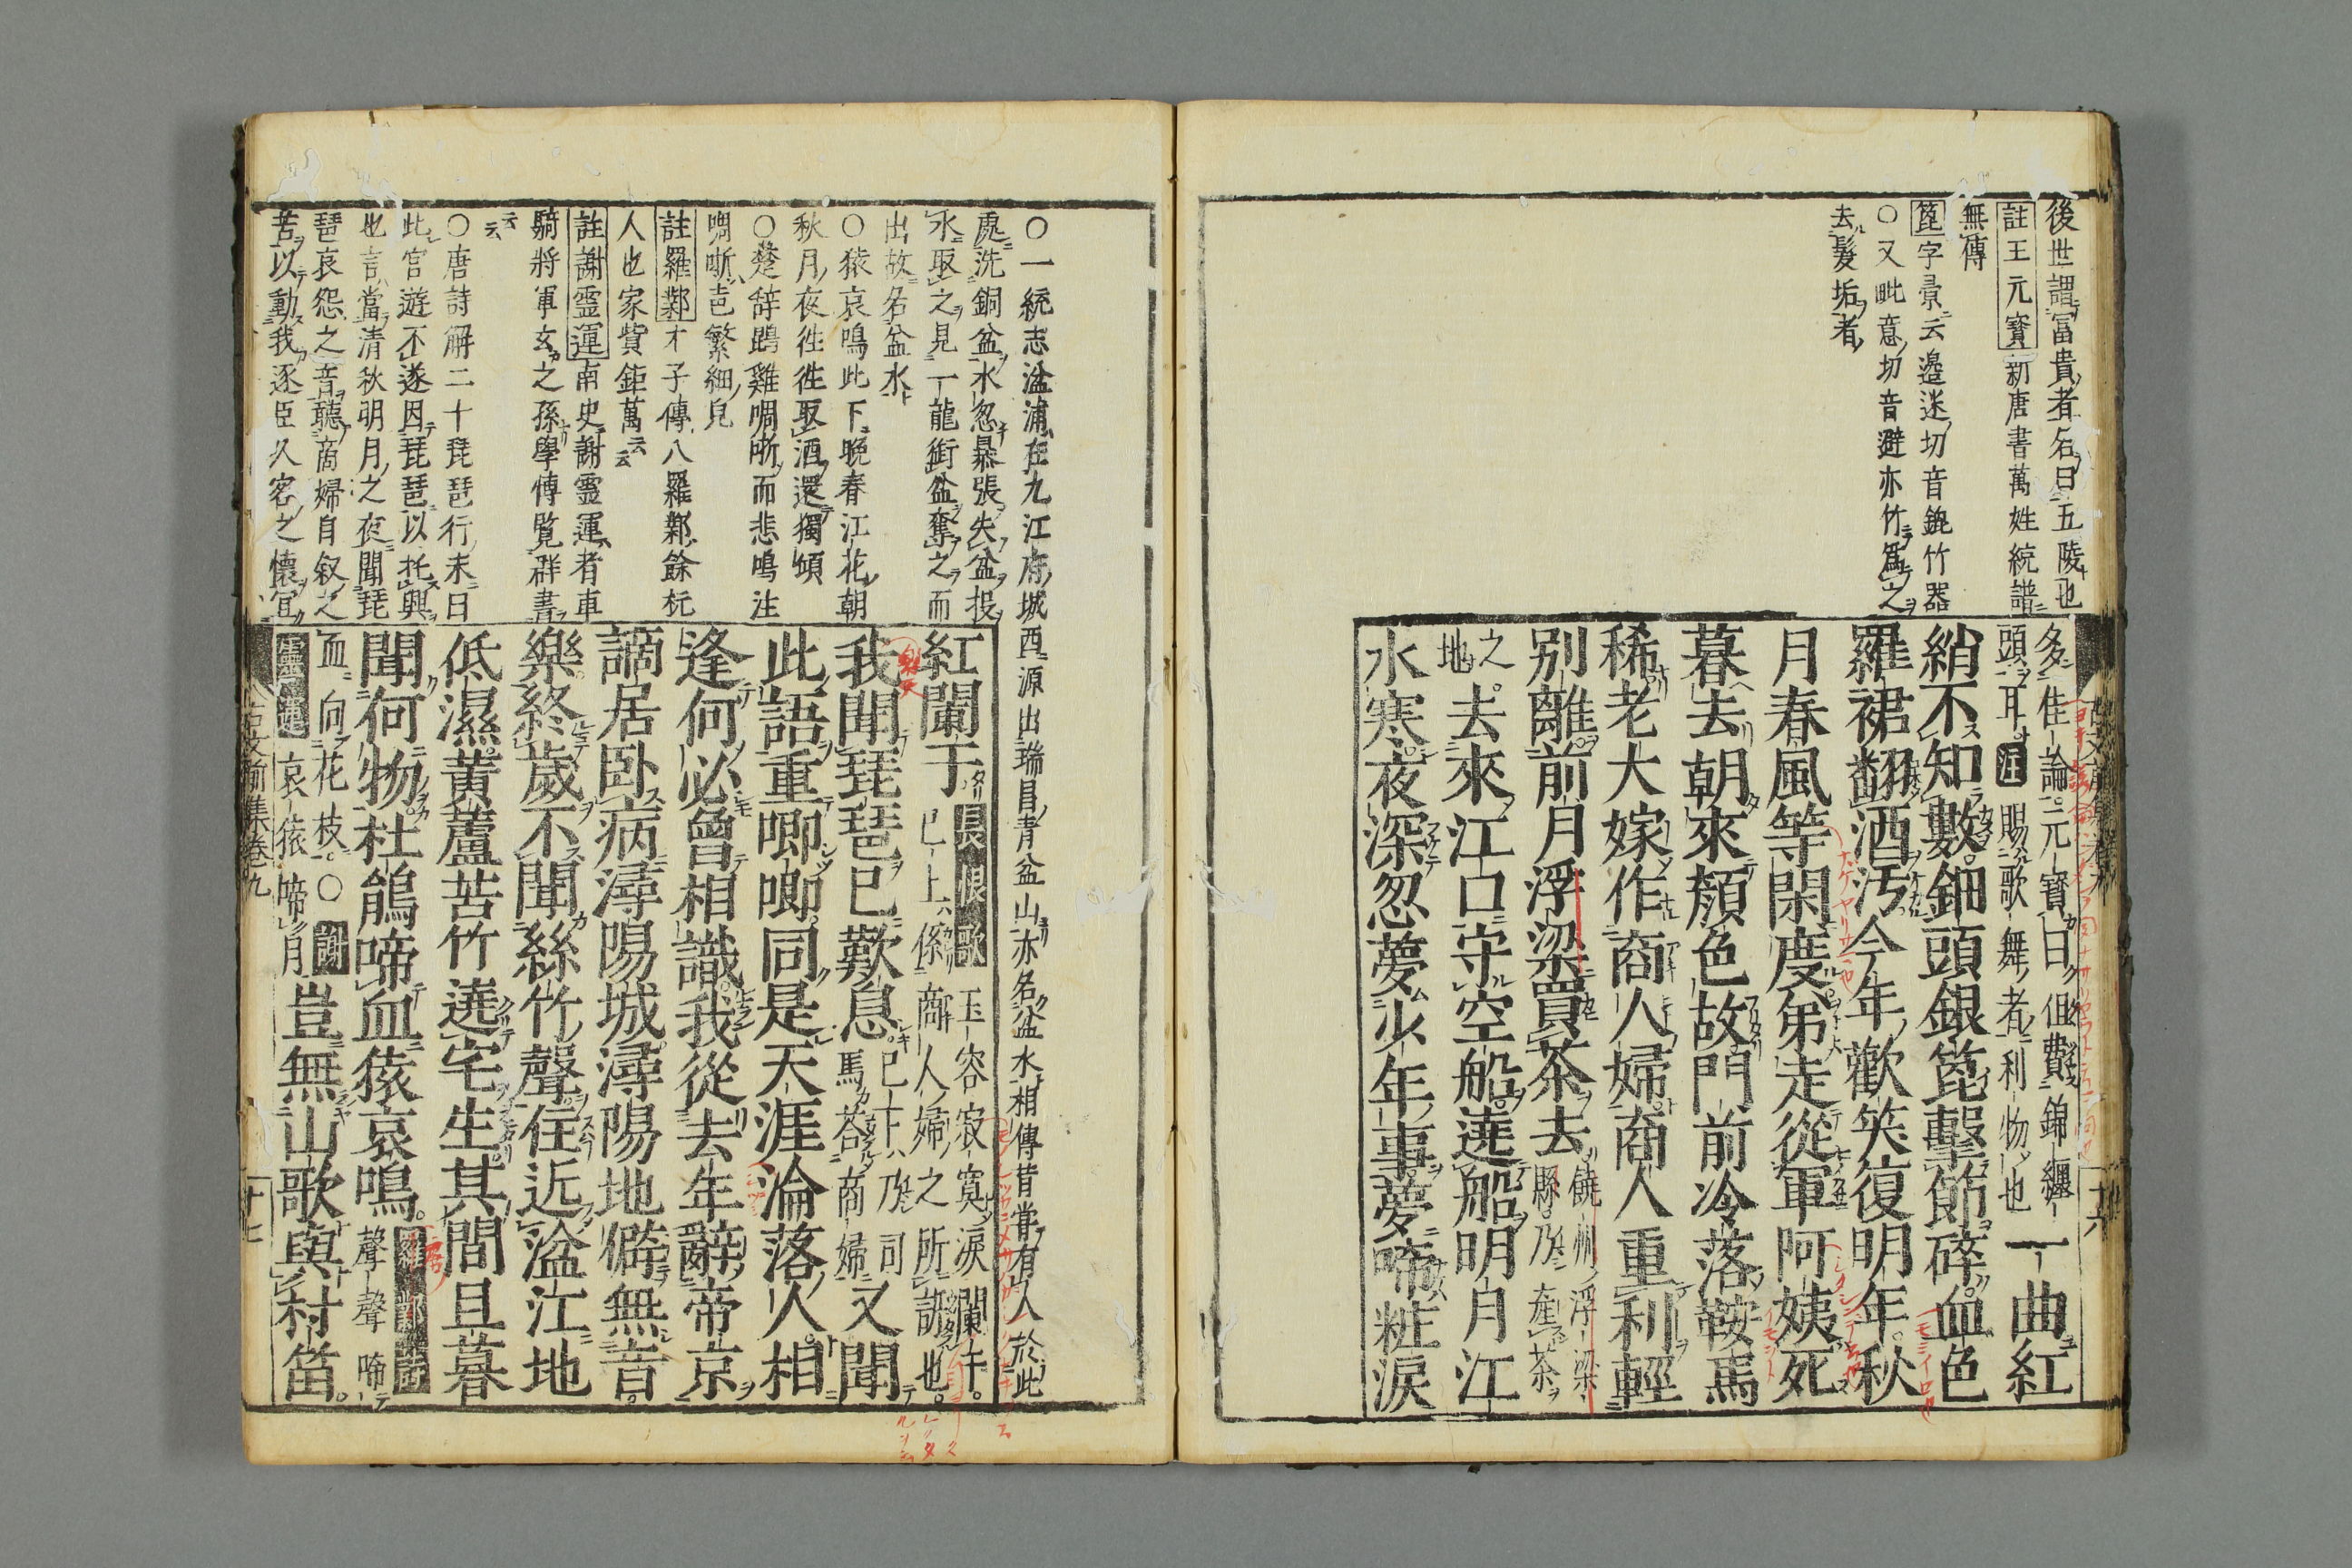 後世謂冨貴者名曰五陵也
註王元寶新唐書萬姓統譜
無傳
箆字彙云邉迷切音鎞竹器
○又毗意切音避亦竹爲之
去髮垢者
多佳論元寶曰但費錦纏
頭耳注賜歌舞者利物也
一曲紅
綃不知數鈿頭銀箆擊節碎血色
羅裙翻酒汚今年歡笑復明年秋
月春風等閑度弟走從軍阿姨死
暮去朝來顏色故門前冷落鞍馬
稀老大嫁作商人婦商人重利輕
別離前月浮梁買茶去
饒州浮梁
縣乃産茶
之
地
去來江口守空船遶船明月江
水寒夜深忽夢少年事夢啼粧淚
十六
○一統志湓浦在九江府城西源出瑞昌青盆山亦名盆水相傳昔嘗有人於此
處洗銅盆水忽暴張失盆投
水取之見一龍銜盆奪之而
出故名盆水
○猿哀鳴此下晩春江花朝
秋月夜徃徃取酒還獨傾
○楚辞鵾雞啁哳而悲鳴注
啁哳㫖繁細皃
註羅鄴才子傳八羅鄴餘杭
人也家貲鉅萬云云
註謝靈運南史謝靈運者車
騎將軍玄之孫學愽覧群書
云云
○唐詩解二十琵琶行末曰
此官遊不遂因琵琶以托興
也言當清秋明月之夜聞琵
琶哀怨之音聽商婦自叙之
苦以動我逐臣久客之懷宜
紅闌干
長恨歌玉容寂寞淚闌干
已上係商人婦之所訴也
我聞琵琶已歎息
已下乃司
馬荅商婦
又聞
此語重唧唧同是天涯淪落人相
逢何必曾相識我從去年辭帝京
謫居卧病潯陽城潯陽地僻無音
樂終歲不聞絲竹聲住近湓江地
低濕黄蘆苦竹遶宅生其間且暮
聞何物杜鵑啼血猿哀鳴
羅鄴詩
聲聲啼
血向花枝○謝
靈運哀猿啼月
豈無山歌與村笛
古文前集卷九
十七